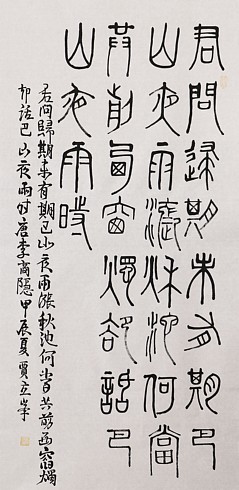 君問歸期未有期巴
山夜雨漲秋池何當
共剪西窗燭卻話巴
山夜雨時
君问歸期未有期巴山夜雨漲秋池何當共剪西窗燭
却話巴山夜雨时唐李商隱甲辰夏賈立峯